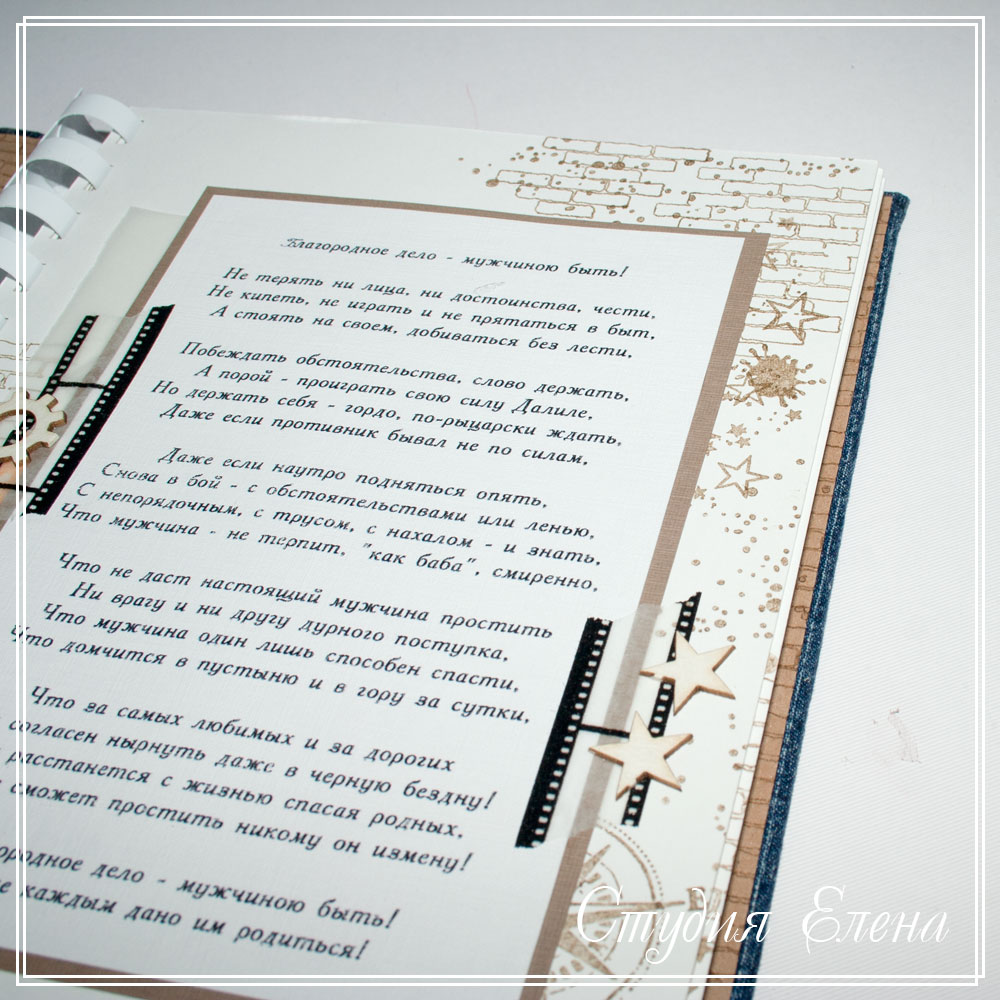 Благородное дело - мужчиною быть!
Не терять ни лица, ни достоинства, чести,
Не кипеть, не играть и не прятаться в быт,
А стоять на своем, добиваться без лести,
Побеждать обстоятельства, слово держать,
А порой - проиграть свою силу Далиле,
Но держать себя - гордо, по-рыцарски ждать,
Даже если противник бывал не по силам,
Даже если наутро подняться опять,
Снова в бой - с обстоятельствами или ленью,
С непорядочным, с трусом, с нахалом - и знать,
Что мужчина - не терпит, "как баба", смиренно,
Что не даст настоящий мужчина простить
Ни врагу и ни другу дурного поступка,
Что мужчина один лишь способен спасти,
Что домчится в пустыню и в гору за сутки,
Что за самых любимых и за дорогих
согласен нырнуть даже в черную бездну!
расстанется с жизнью спасая родных,
сможет простить никому он измену!
ородное дело - мужчиною быть!
каждым дано им родиться!
Студия Елена